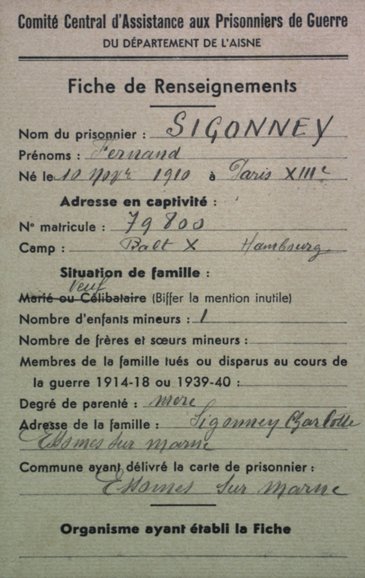 Comité Central d'Assistance aux Prisonniers de Guerre
DU DÉPARTEMENT DE L'AISNE
Fiche de Renseignements
Nom du prisonnier : SIGONNEY
Prénoms : Fernand
Né le 10 Novre 1910 à Paris XIIIe
Adresse en captivité :
N° matricule : 79800
Camp : Balt X Hambourg
Situation de famille :
Veuf
Marié ou Célibataire (Biffer la mention inutile)
Nombre d'enfants mineurs : 1
Nombre de frères et sœurs mineurs :
Membres de la famille tués ou disparus au cours de
la guerre 1914-18 ou 1939-40 :
Degré de parenté : mère
Adresse de la famille : Sigonney Charlotte
Essomes sur marne
Commune ayant délivré la carte de prisonnier :
Essomes sur marne
Organisme ayant établi la Fiche